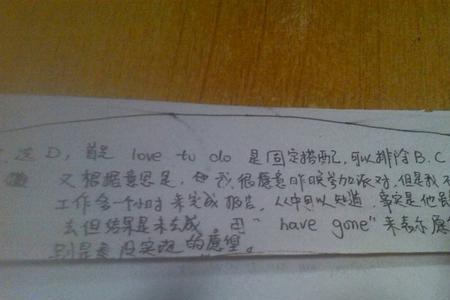 选 D, 首先 love to do 是固定搭配, 可以排除 B.C
又根据意思是, 我很愿意昨晚参加派对, 但是我不
工作多一个小时 来完成报告, 从中可以知道, 事实是他
去但结果是未去成, 用 "have gone" 来表示愿
没实现的愿望。